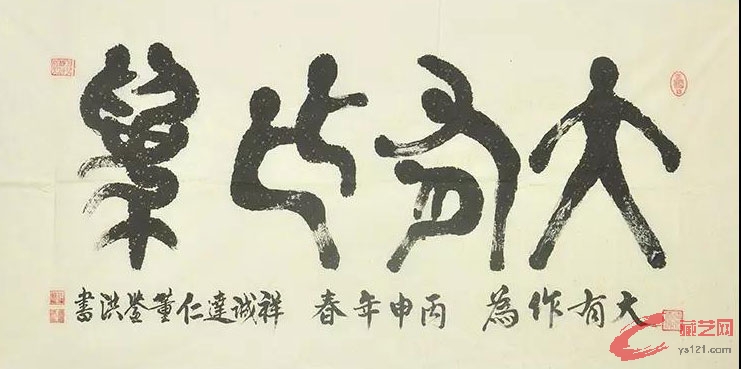 大有作為
大有作為 丙申年春 祥誠達仁董瑩洪書
藏艺网
ys121.com